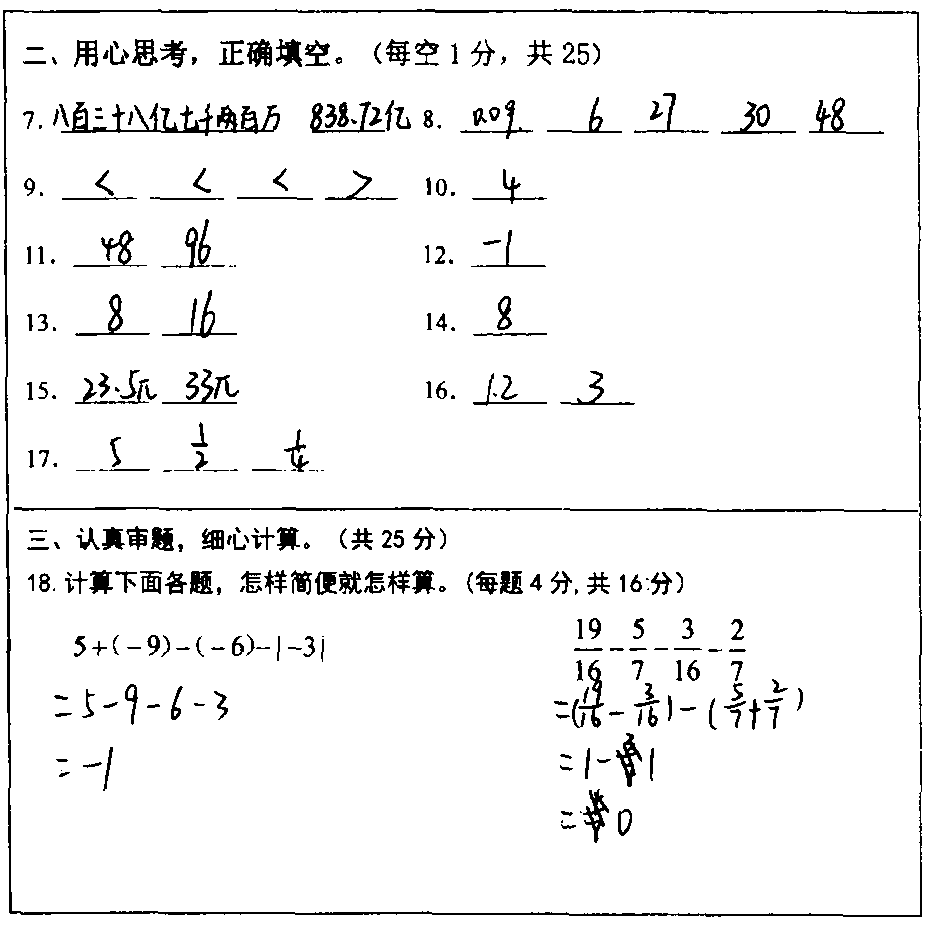 二、用心思考，正确填空。（每空1分，共25）
7. 八百三十八亿七千两百万 838.72亿 8. 0.09 6 27 30 48
9. < < < > 10. 4
11. 48 96 12. -1
13. 8 16 14. 8
15. 23.5π 33π 16. 1.2 3
17. 5 1/2 1/4
三、认真审题，细心计算。（共25分）
18. 计算下面各题，怎样简便就怎样算。（每题4分，共16分）
5+(-9)-(-6)-|-3| 19/16-5/7-3/16-2/7
=5-9-6-3 =(19/16-3/16)-(5/7+2/7)
=-1 =1-1
=0